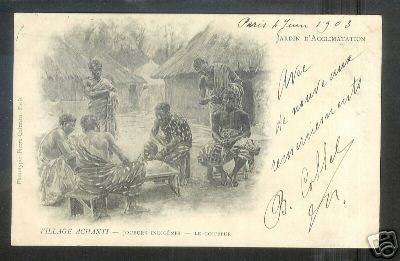 Paris 4 Juin 1903
JARDIN D'ACCLIMATATION
Avec
de nouveaux
remerciements
Phototypie Pierre Paris
VILLAGE ACHANTI — JOUEURS INDIGÈNES — LE COIFFEUR